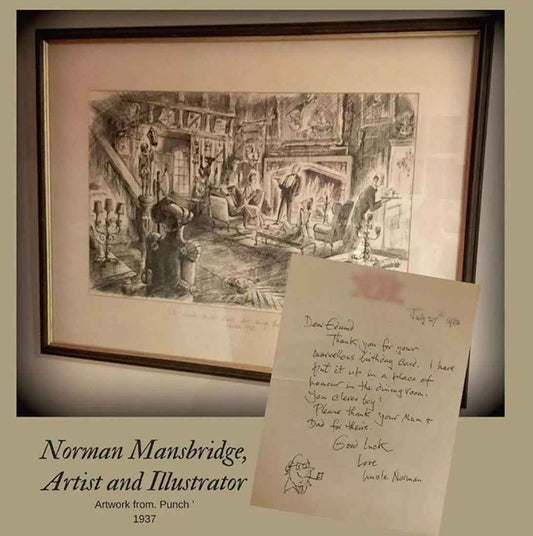 July 27th
Dear Edmund
Thank you for your
marvellous birthday card. I have
put it up in a place of
honour in the dining room.
You clever boy!
Please thank your Mum +
Dad for theirs.
Good Luck
Love
Uncle Norman
Norman Mansbridge,
Artist and Illustrator
Artwork from. Punch '
1937